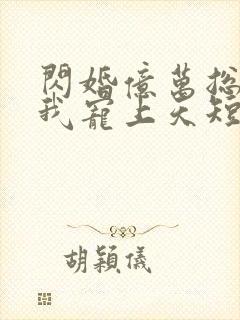 閃婚億萬總
我寵上天短
胡穎儀